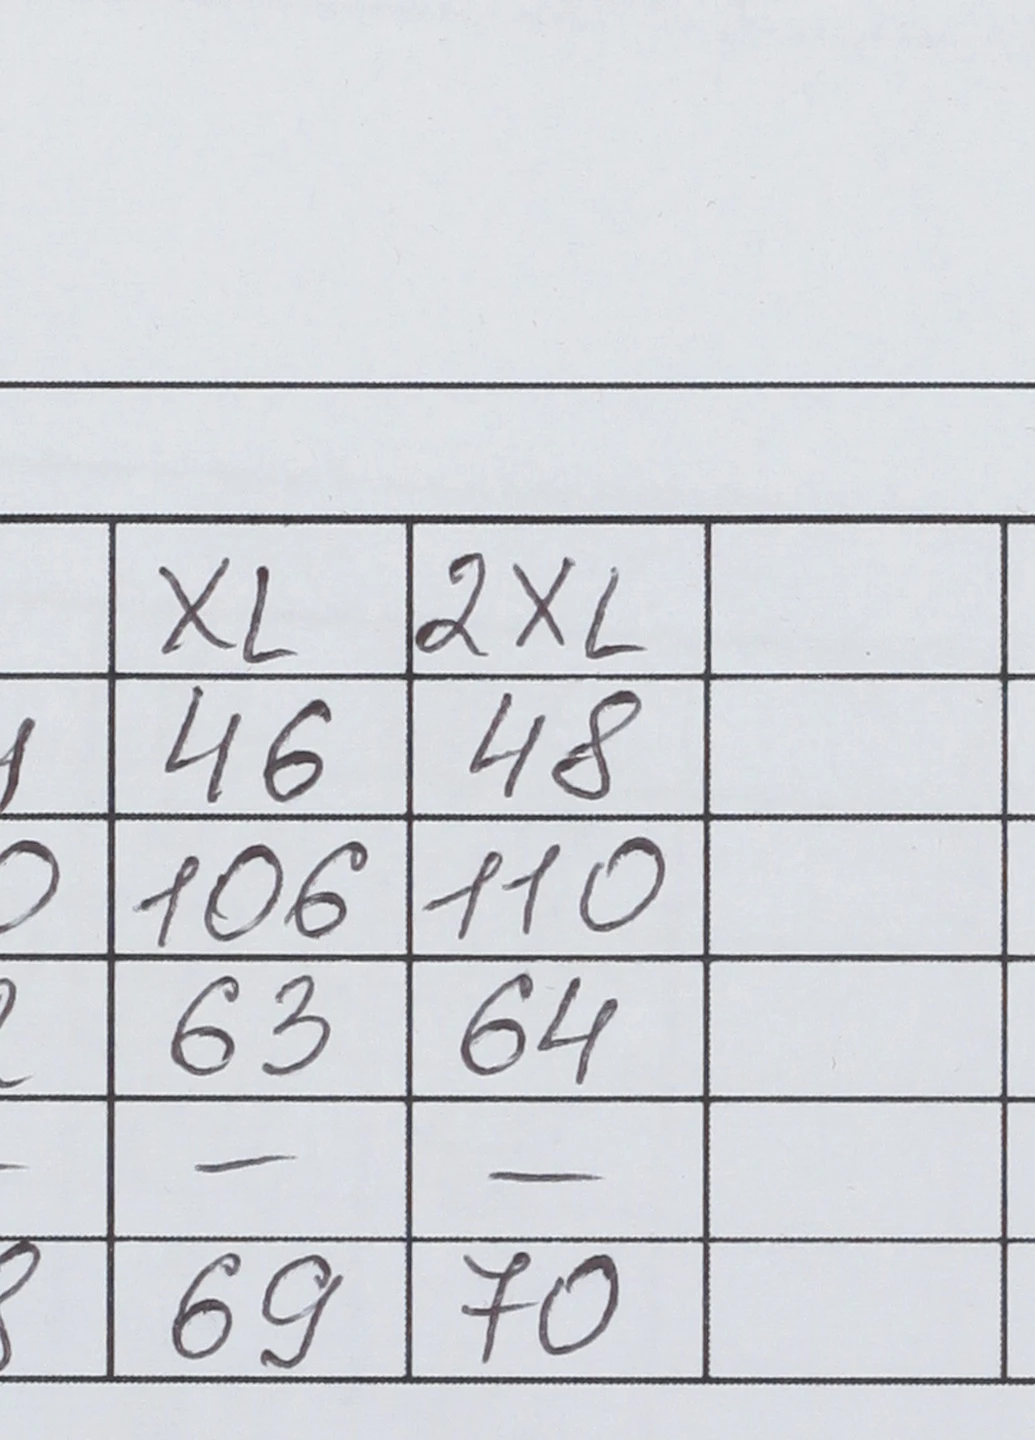 XL 2XL
46 48
0 106 110
2 63 64
- — —
8 69 70